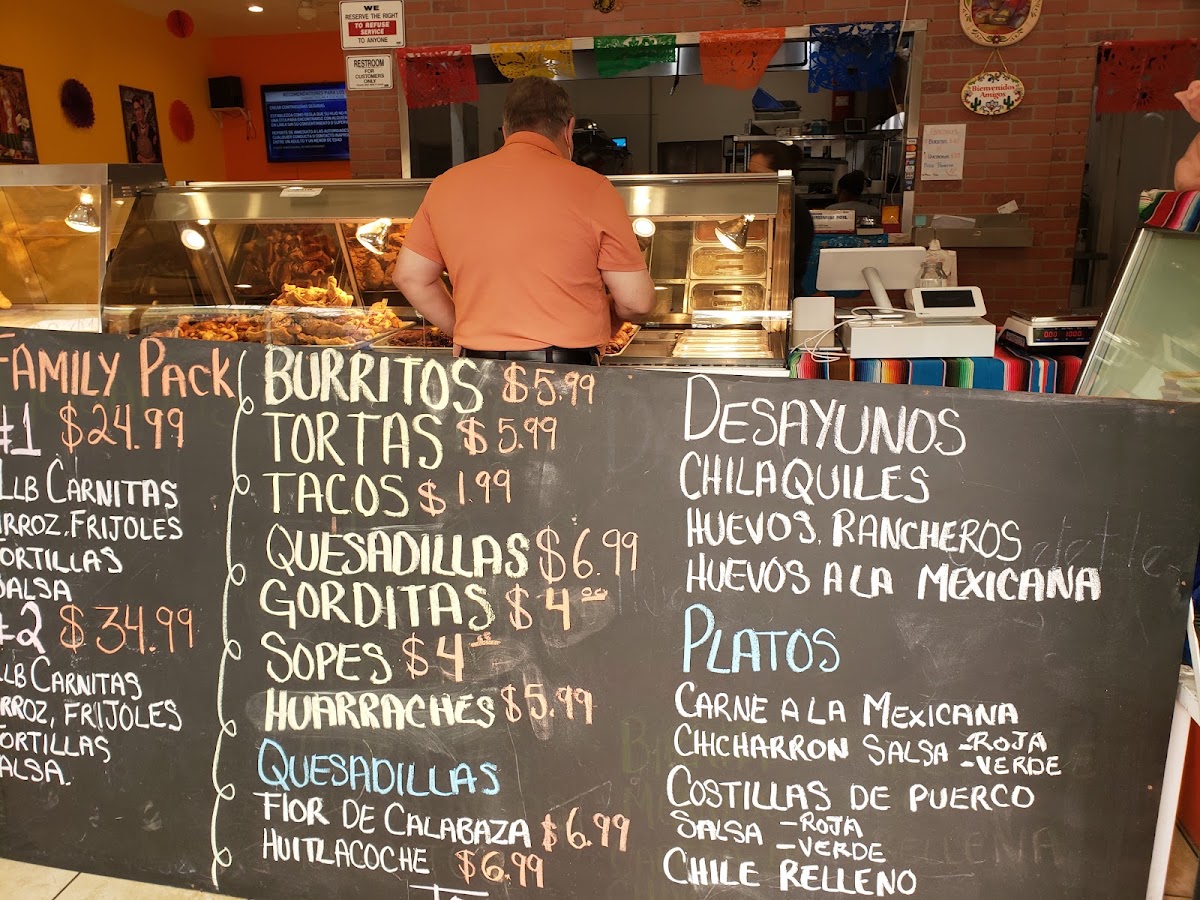 WE
RESERVE THE RIGHT
TO REFUSE
SERVICE
TO ANYONE
RESTROOM
FOR
CUSTOMERS
ONLY
Bienvenidos
Amigos
FAMILY PACK
#1 $24.99
LB CARNITAS
ARROZ, FRIJOLES
TORTILLAS
SALSA
#2 $34.99
LB CARNITAS
ARROZ, FRIJOLES
TORTILLAS
SALSA.
BURRITOS $5.99
TORTAS $5.99
TACOS $1.99
QUESADILLAS $6.99
GORDITAS $4.00
SOPES $4.00
HUARRACHES $5.99
QUESADILLAS
FLOR DE CALABAZA $6.99
HUITLACOCHE $6.99
DESAYUNOS
CHILAQUILES
HUEVOS, RANCHEROS
HUEVOS A LA MEXICANA
PLATOS
CARNE A LA MEXICANA
CHICHARRON SALSA -ROJA
-VERDE
COSTILLAS DE PUERCO
SALSA -ROJA
-VERDE
CHILE RELLENO